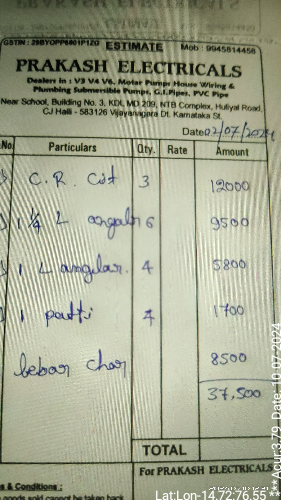 GSTIN : 29BYOPP6601P1ZG ESTIMATE Mob : 9945814458
PRAKASH ELECTRICALS
Dealers in : V3 V4 V6, Motar Pumps House Wiring &
Plumbing Submersible Pumps, G.I.Pipes, PVC Pipe
Near School, Building No. 3, KDL MD 209, NTB Complex, Huliyal Road,
CJ Halli - 583126 Vijayanagara Dt. Karnataka St.
Date 02/07/2024
No. Particulars Qty. Rate Amount
C.R. Cist 3 12000
1 1/4 L angalr 6 9500
1 L anglar. 4 5800
1 patti 7 1700
lebar char 8500
37,500
TOTAL
For PRAKASH ELECTRICALS
s & Conditions :
goods sold cannot be taken back
Lat:Lon-14.72:76.55
***Acur:3.79 Date: 10-07-2024